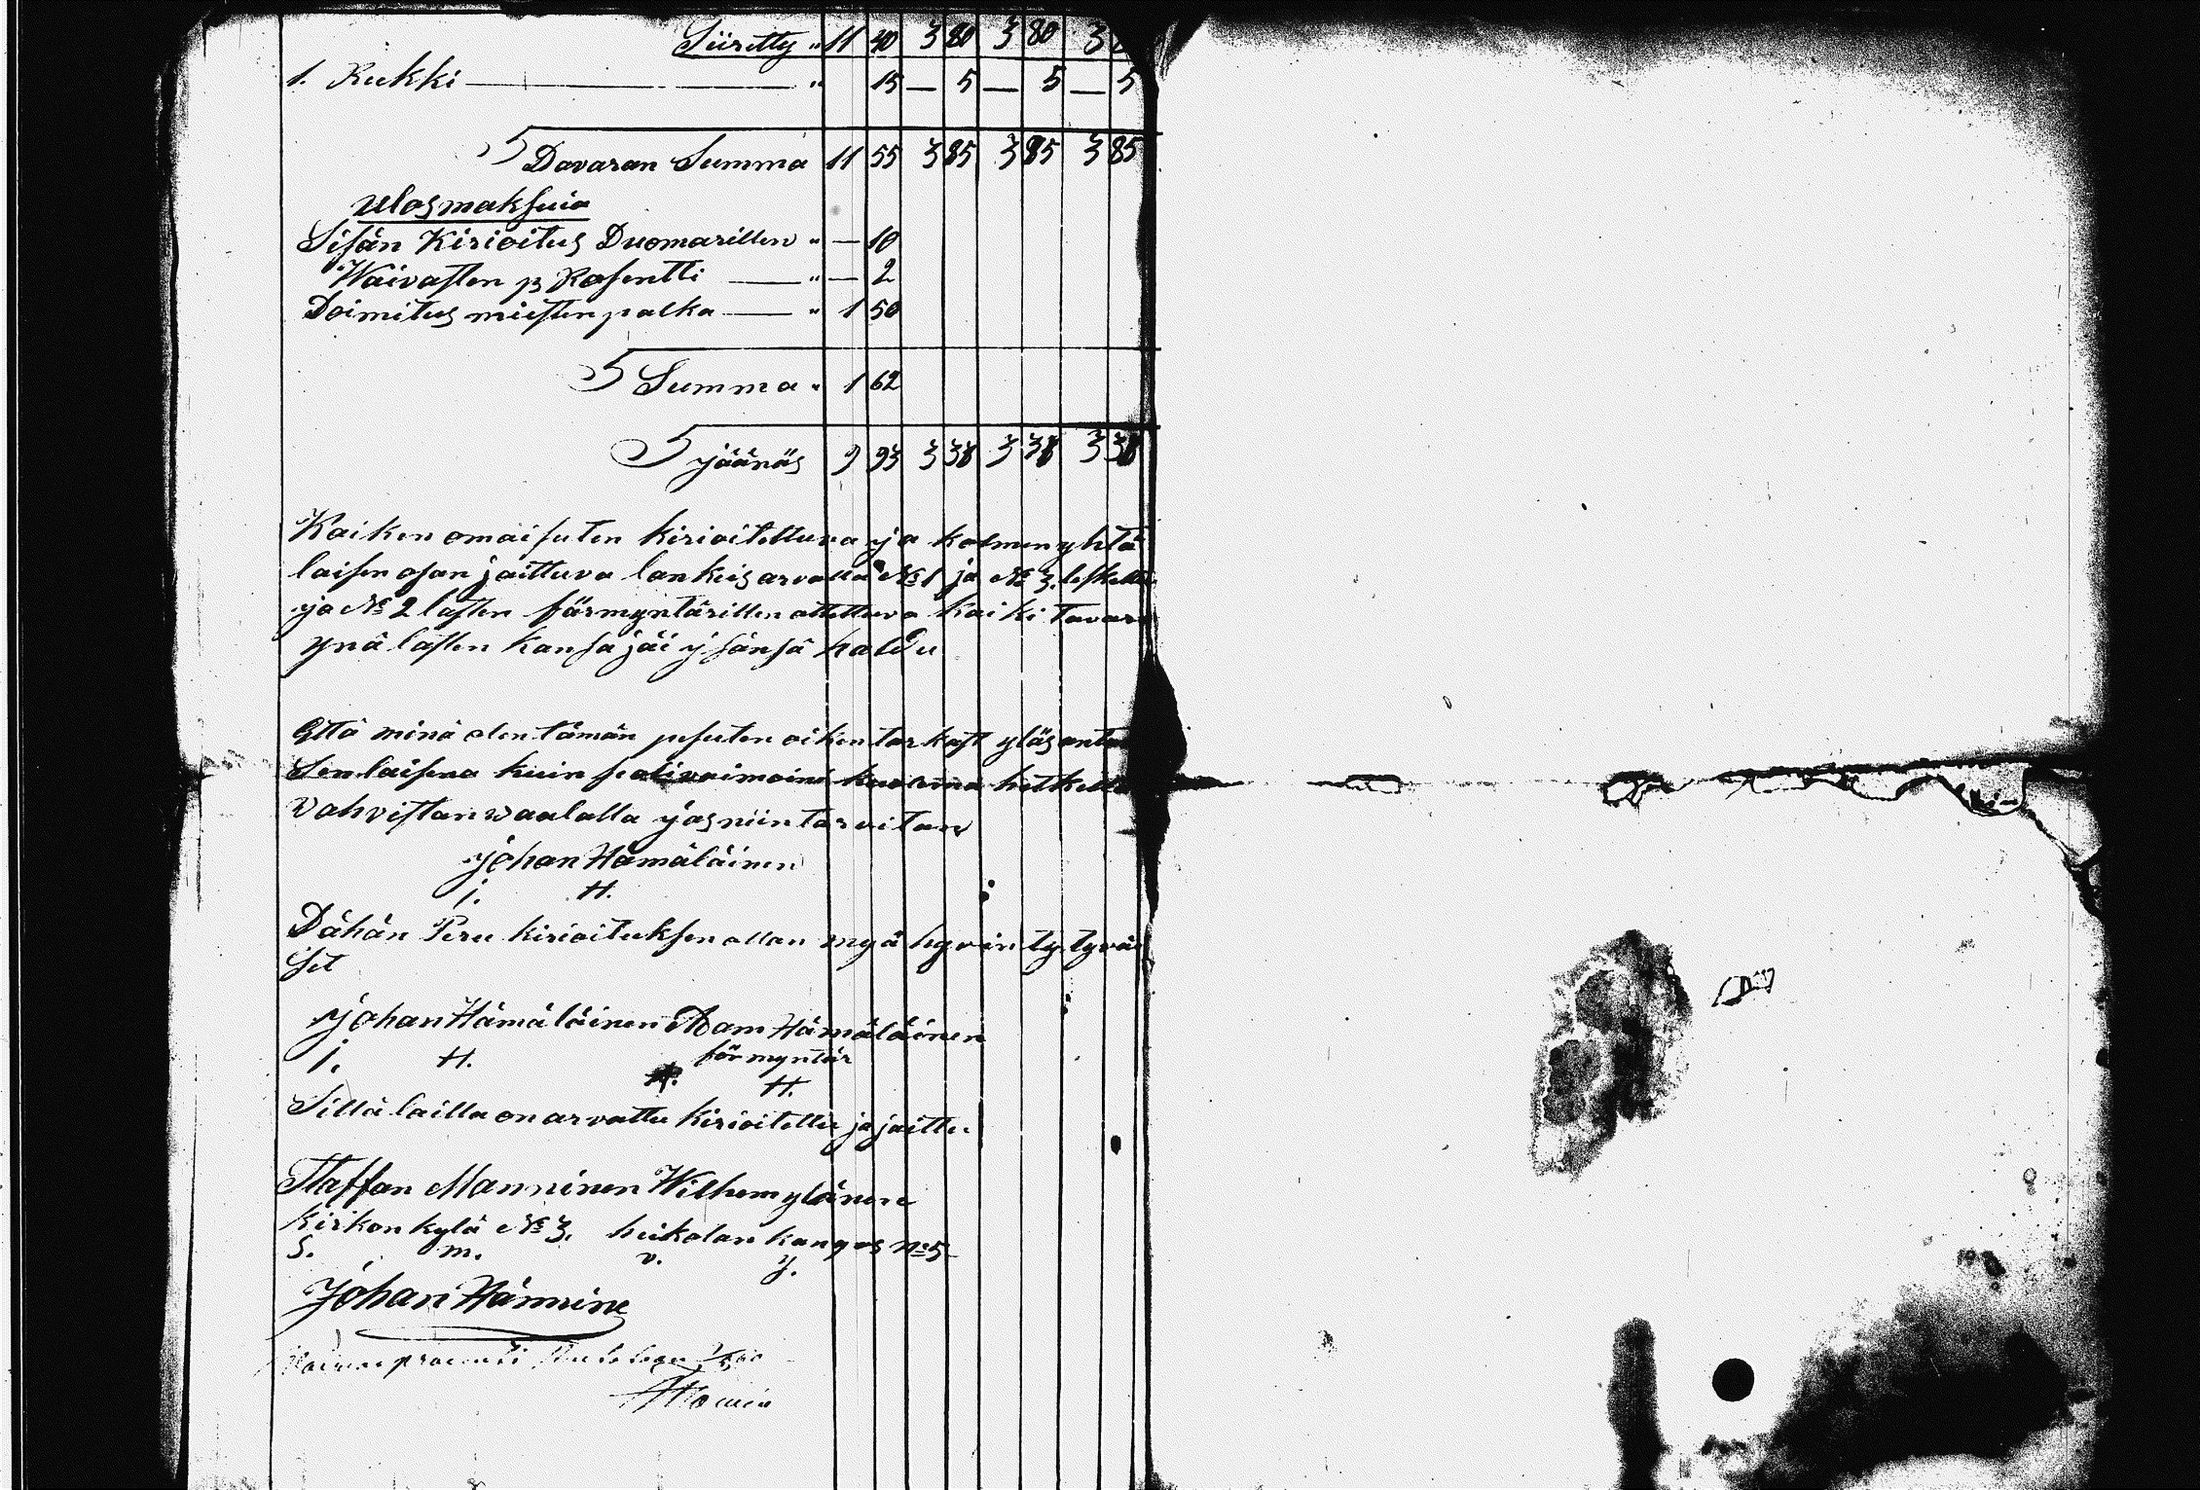 Siiretty " 11 40 3 80 3 80 3
1. Rukki " 15 — 5 — 5 — 5
Davaran Summa 11 55 3 85 3 85 3 85
Ulosmaksuia
Sisän Kirioitus Duomarillen " — 10
Waivasten p Rosentti " — 2
Doimitus miesten palka " 1 50
Summa " 1 62
jäänäs 9 93 3 38 3 38 3 38
Kaiken omaisuten kirioitettuna ja kolmen yhtä
laisen osan jaittuva lankeis arvalla No 1 ja No 3. leskelle
ja No 2 lasten färmyntärillen otettuva kaiki tavara
ynä lasten kansa jäi isänsä haldu
Että minä olen tämän pesuten oiken tarkast yläs anta
Senlaisena kuin se oli vaimoini kuolema hetkellä
Vahvistan waalalla jos niin tarvitan
Johan Hämäläinen
j. H.
Dähän Peru kirioituksen ollan myä hyvin tytyväi
Set
Johan Hämäläinen Aam Hämäläinen
förmyntär
j. H. H.
Sillä lailla on arvattu kirioitettu ja jaittu
Staffan Manninen Wilhem ylänen
kirkon kylä No 3. heikolan kangas No 5
S. m. v. y.
Johan Hännine